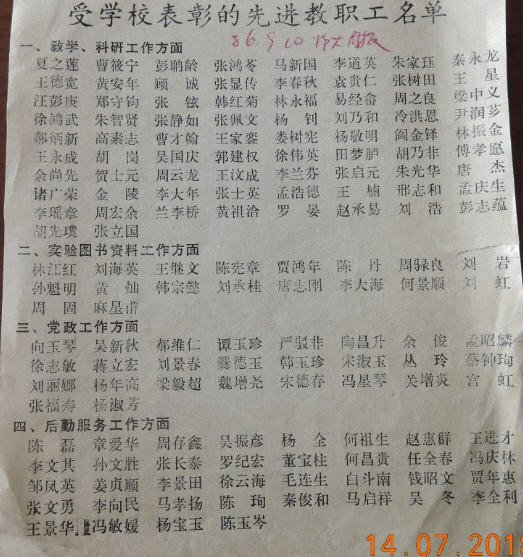 受学校表彰的先进教职工名单
86.9.10 师大校报
一、教学、科研工作方面
夏之莲 曹筱宁 彭聃龄 张鸿苓 马新国 李道英 朱家珏 秦永龙
王德宽 黄安年 顾诚 张显传 李春秋 袁贵仁 张树田 王星
汪彭庚 郑守钧 张铉 韩红菊 林永福 易经畲 周之良 梁中义
徐鸿武 朱智贤 张静如 张佩文 杨钊 刘乃和 冷洪恩 尹润芗
郝炳新 高素志 曹才翰 王家銮 娄树宪 杨敬明 阎金铎 林振金
王永成 胡岗 吴国庆 郭建权 徐伟英 田梦胪 胡乃非 傅孝愿
余尚先 贺士元 周云龙 王汶成 李兰芬 张启元 朱光华 唐杰
诸广荣 金陵 李大年 张士英 孟浩德 王楠 邢志和 孟庆生
李瑶章 周宏余 兰李桥 黄祖洽 罗晏 赵承易 刘浩 彭志蕴
胡先璞 张立国
二、实验图书资料工作方面
林江红 刘海英 王继文 陈宪章 贾鸿年 陈丹 周騄良 刘岩
孙魁明 黄灿 韩宗懿 刘承桂 唐志刚 李大海 何景顺 刘虹
周固 麻星甫
三、党政工作方面
向玉琴 吴新秋 郝维仁 谭玉珍 严驳非 陶昌升 余俊 孟昭麟
徐志敏 蒋立宏 刘景春 爨德玉 韩玉珍 宋淑玉 丛玲 蔡钟珣
刘丽娜 杨年高 梁毅超 魏增尧 宋德存 冯星琴 关增炎 宫虹
张福寿 杨淑芳
四、后勤服务工作方面
陈磊 章爱华 周存鑫 吴振彦 杨全 何祖生 赵惠群 王进才
李文其 孙文胜 张长泰 罗纪宏 董宝柱 何昌贵 任全春 冯庆林
邹凤英 姜贞顺 李景田 徐云海 毛连生 白斗南 钱昭文 贾年惠
张文勇 李向民 马孝扬 陈珣 秦俊和 马启祥 吴冬 李全利
王景华 冯敏媛 杨宝玉 陈玉岑
14.07.2018